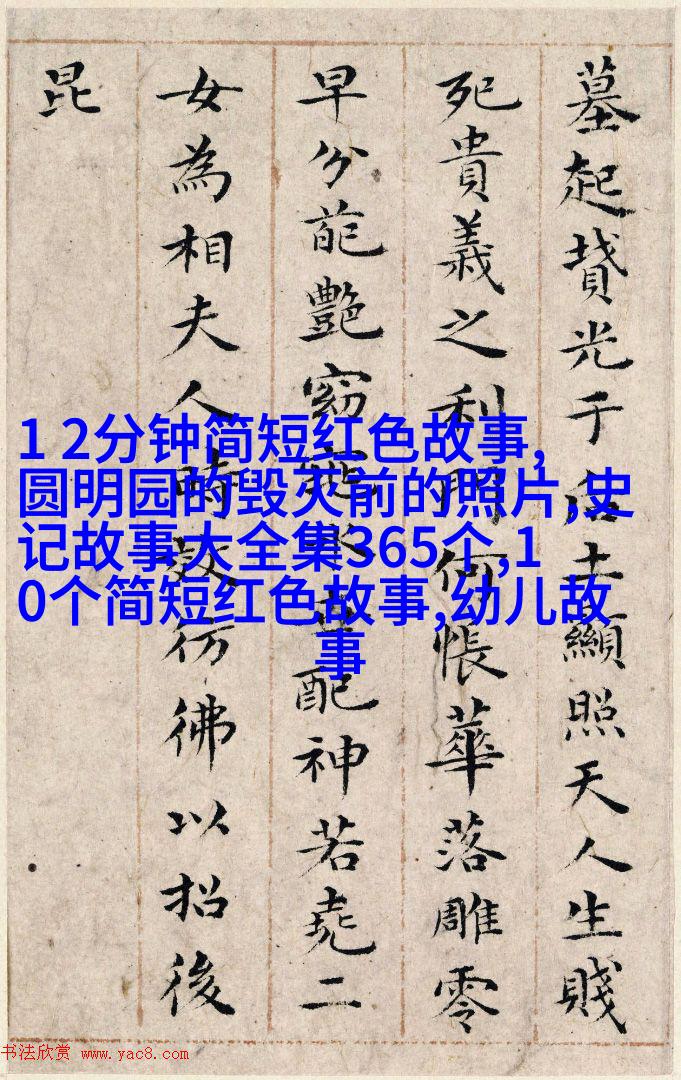 墓起墳光于后土顯照天人生賤
死貴義之利門何悵華落雕零
早分葩艷窈窕永世配神若堯二
女為相夫人時效仿彿以招後
昆
1 2分钟简短红色故事,
圆明园的毁灭前的照片,史
记故事大全集365个,1
0个简短红色故事,幼儿故
事
书法欣赏 www.yac8.com